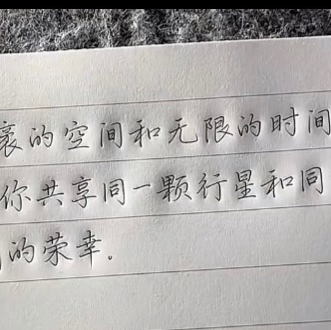 袤的空间和无限的时间
你共享同一颗行星和同
的荣幸。